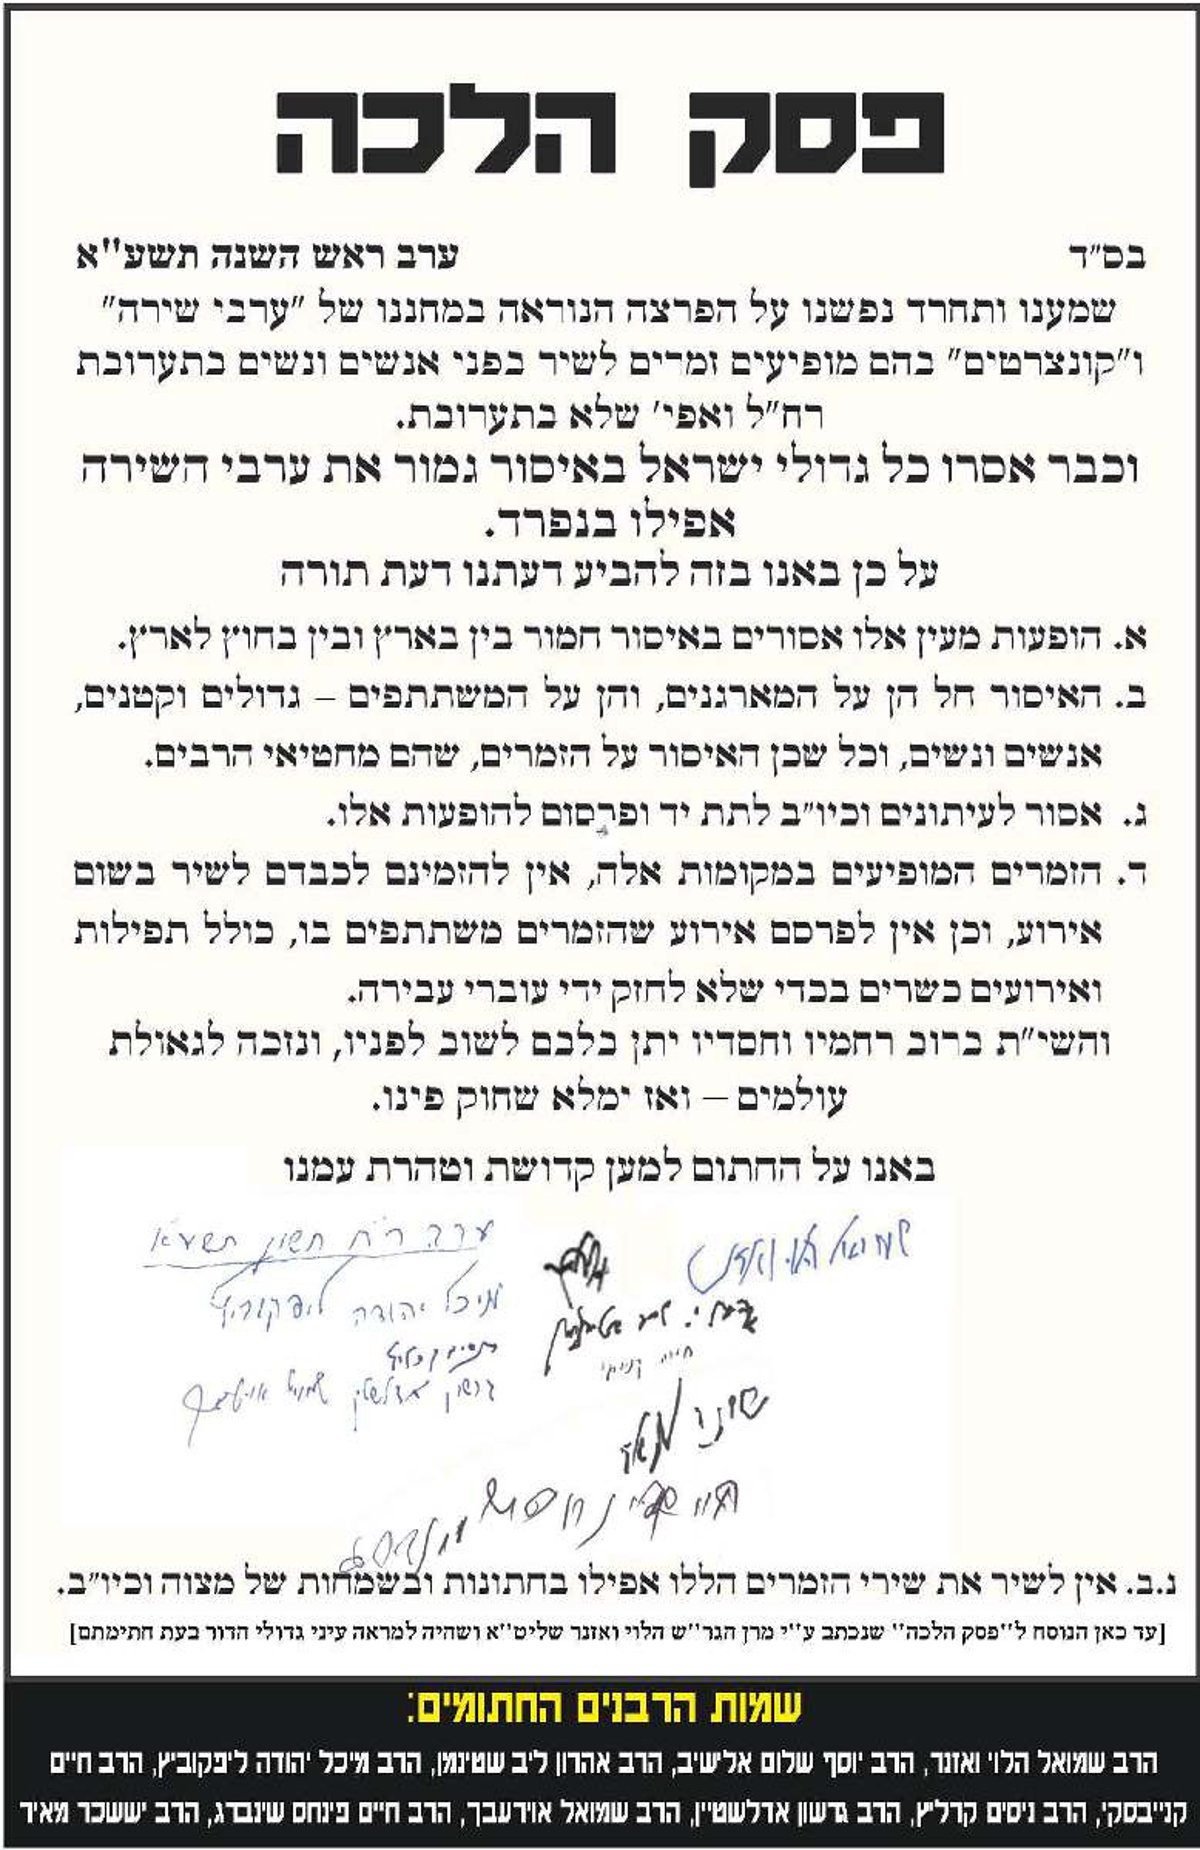 פסק הלכה
בס״ד ערב ראש השנה תשע"א
שמענו ותחרד נפשנו על הפרצה הנוראה במחננו של ״ערבי שירה״
ו״קונצרטים״ בהם מופיעים זמרים לשיר בפני אנשים ונשים בתערובת
רח״ל ואפי׳ שלא בתערובת.
וכבר אסרו כל גדולי ישראל באיסור גמור את ערבי השירה
אפילו בנפרד.
על כן באנו בזה להביע דעתנו דעת תורה
א. הופעות מעין אלו אסורים באיסור חמור בין בארץ ובין בחוץ לארץ.
ב. האיסור חל הן על המארגנים, והן על המשתתפים – גדולים וקטנים,
אנשים ונשים, וכל שכן האיסור על הזמרים, שהם מחטיאי הרבים.
ג. אסור לעיתונים וכיו״ב לתת יד ופרסום להופעות אלו.
ד. הזמרים המופיעים במקומות אלה, אין להזמינם לכבדם לשיר בשום
אירוע, וכן אין לפרסם אירוע שהזמרים משתתפים בו, כולל תפילות
ואירועים כשרים בכדי שלא לחזק ידי עוברי עבירה.
והשי״ת ברוב רחמיו וחסדיו יתן בלבם לשוב לפניו, ונזכה לגאולת
עולמים – ואז ימלא שחוק פינו.
באנו על החתום למען קדושת וטהרת עמנו
ערב ר״ח חשון תשע״א
מיכל יהודה ליפקוביץ
נ.ב. אין לשיר את שירי הזמרים הללו אפילו בחתונות ובשמחות של מצוה וכיו״ב.
[עד כאן הנוסח ל''פסק הלכה'' שנכתב ע''י מרן הגר''ש הלוי ואזנר שליט''א ושהיה למראה עיני גדולי הדור בעת חתימתם]
שמות הרבנים החתומים:
הרב שמואל הלוי ואזנר, הרב יוסף שלום אלישיב, הרב אהרון ליב שטינמן, הרב מיכל יהודה ליפקוביץ, הרב חיים
קנייבסקי, הרב ניסים קרליץ, הרב גרשון אדלשטיין, הרב שמואל אוירעבך, הרב חיים פינחס שינברג, הרב יששכר מאיר